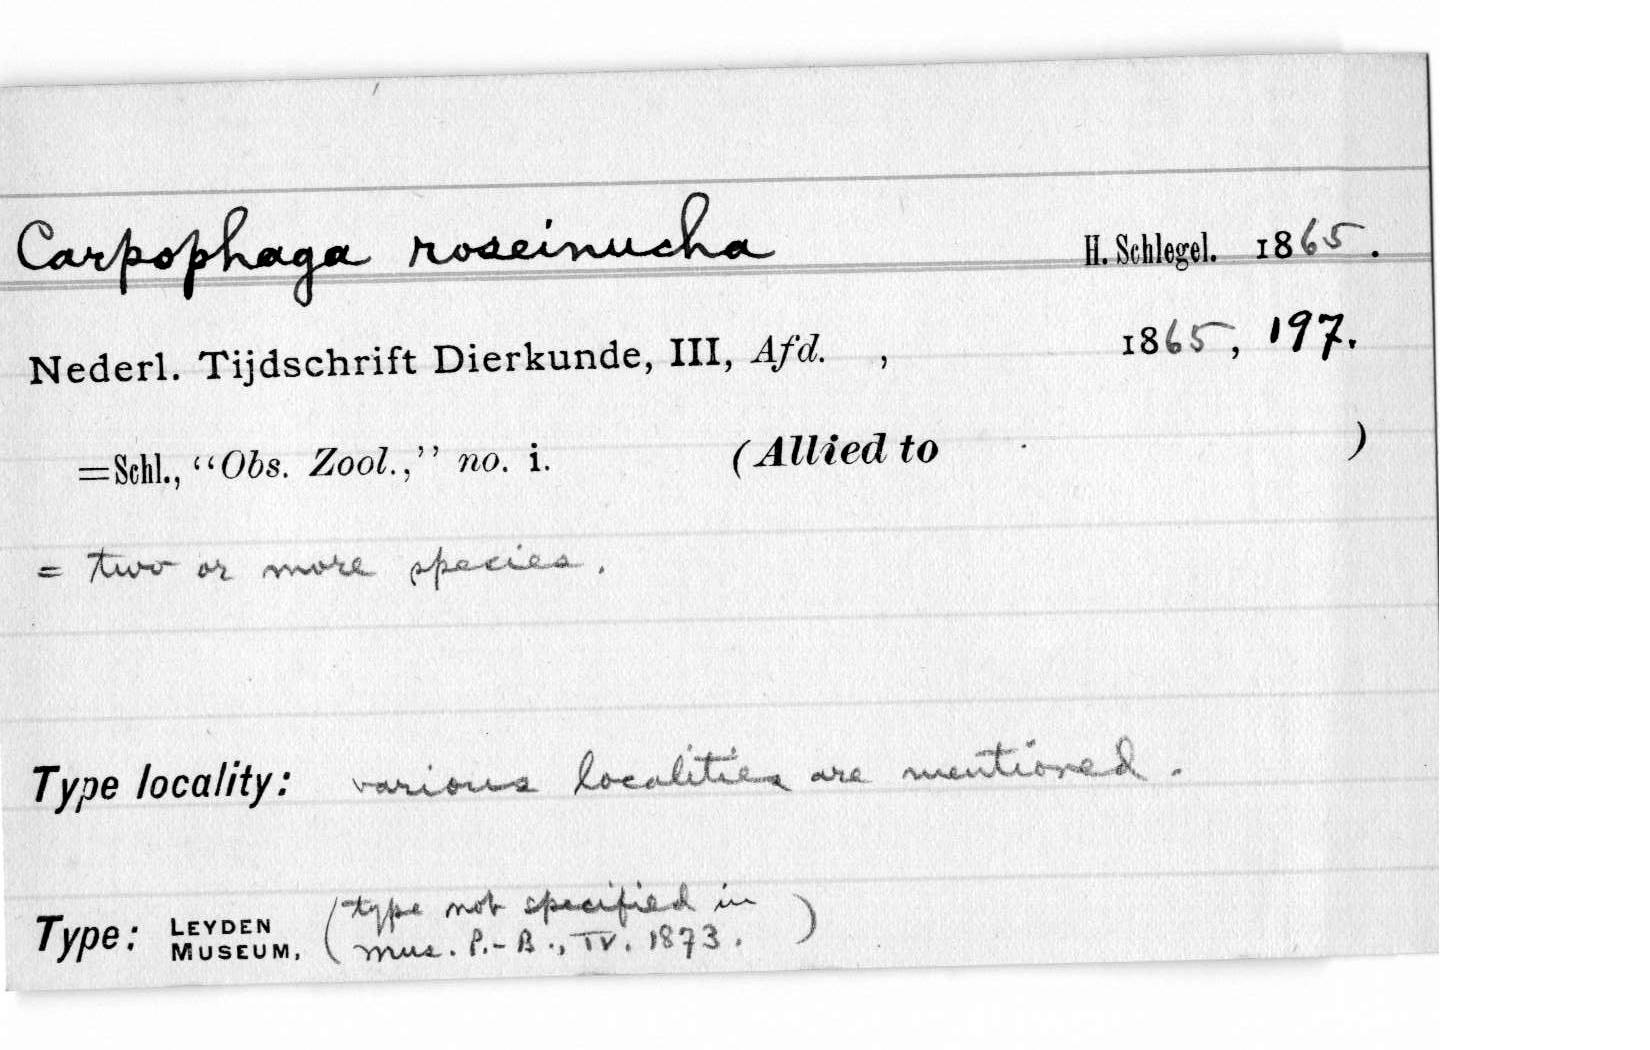 Carpophaga roseinucha H. Schlegel. 1865.
Nederl. Tijdschrift Dierkunde, III, Afd. , 1865, 197.
=Schl., “Obs. Zool.,” no. i. (Allied to )
= two or more species.
Type locality: various localities are mentioned.
Type: LEYDEN MUSEUM, (type not specified in
mus. P.-B., IV. 1873.)